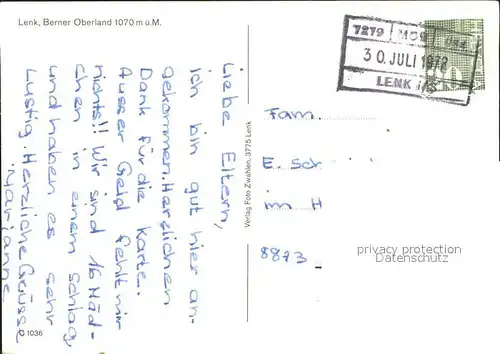 Lenk, Berner Oberland 1070 m ü. M.
Liebe Eltern,
Ich bin gut hier an-
gekommen. Herzlichen
Dank für die Karte.
Ausser Geld fehlt mir
nichts!! Wir sind 16 Mäd-
chen in einem Schlag,
und haben es sehr
Lustig. Herzliche Grüsse
Marianne
1036
Verlag Foto Zwahlen, 3775 Lenk
7279
30. JULI 1972
LENK i/S
Fam.
E. Sch
im H
8873
privacy protection
Datenschutz